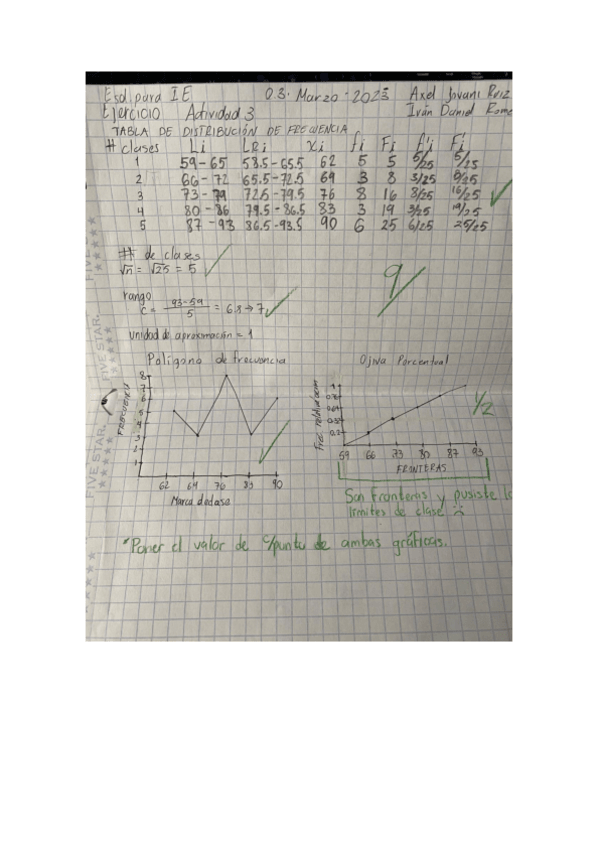 Esd para IE 03 · Marzo · 2023 Axel Jovani Ruiz
Ejercicio Actividad 3 Iván Daniel Rome
TABLA DE DISTRIBUCIÓN DE FRECUENCIA
# clases Li LRi xi fi Fi f'i F'i
1 59-65 58.5-65.5 62 5 5 5/25 5/25
2 66-72 65.5-72.5 69 3 8 3/25 8/25
3 73-79 72.5-79.5 76 8 16 8/25 16/25
4 80-86 79.5-86.5 83 3 19 3/25 19/25
5 87-93 86.5-93.5 90 6 25 6/25 25/25
# de clases
√n = √25 = 5
9
rango
C = 93-59 / 5 = 6.8 → 7
unidad de aproximación = 1
Polígono de frecuencia
Ojiva Porcentual
Frecuencia
8
7
6
5
4
3
2
1
62 69 76 83 90
Marca de clase
1
0.8
0.2
1/2
59 66 73 80 87 93
FRONTERAS
Son fronteras y pusiste lo
límites de clase
*Poner el valor de c/punto de ambas gráficas.
FIVE STAR.
FIVE STAR.
FIVE STAR.